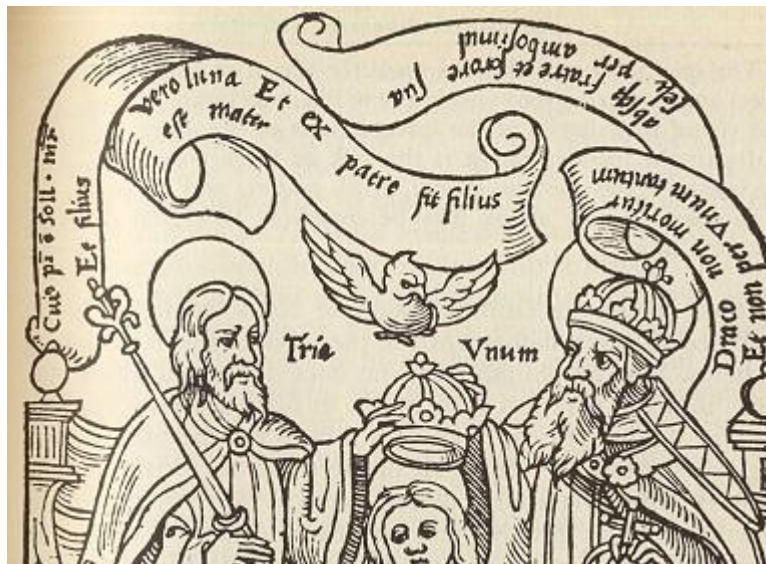 Cui⁹ pr̄ ē Soll · mr̄
Et filius
vero luna Et ex
est mater
patre fit filius
absq; fratre et sorore sua
per ambosimul
Draco non moritur
Et non per Vnum tantum
Tria
Vnum